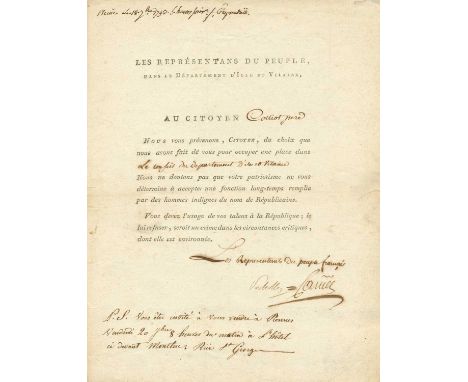 LES REPRÉSENTANS DU PEUPLE,
DANS LE DÉPARTEMENT D'ILLE ET VILAINE,
AU CITOYEN Colliot pere
NOUS vous prévenons, CITOYEN, du choix que
nous avons fait de vous pour occuper une place dans
Le conseil du departement d'ile et Vilaine
Nous ne doutons pas que votre patriotisme ne vous
détermine à accepter une fonction long-temps remplie
par des hommes indignes du nom de Républicains.
Vous devez l'usage de vos talens à la République; le
lui refuser, seroit un crime dans les circonstances critiques,
dont elle est environnée.
Les Representans du peuple français
P.S. Vous êtes invité à vous rendre à Rennes
Vendredi 20 7bre 8 heures du matin à L'hôtel
ci devant Montluc; Rue St George